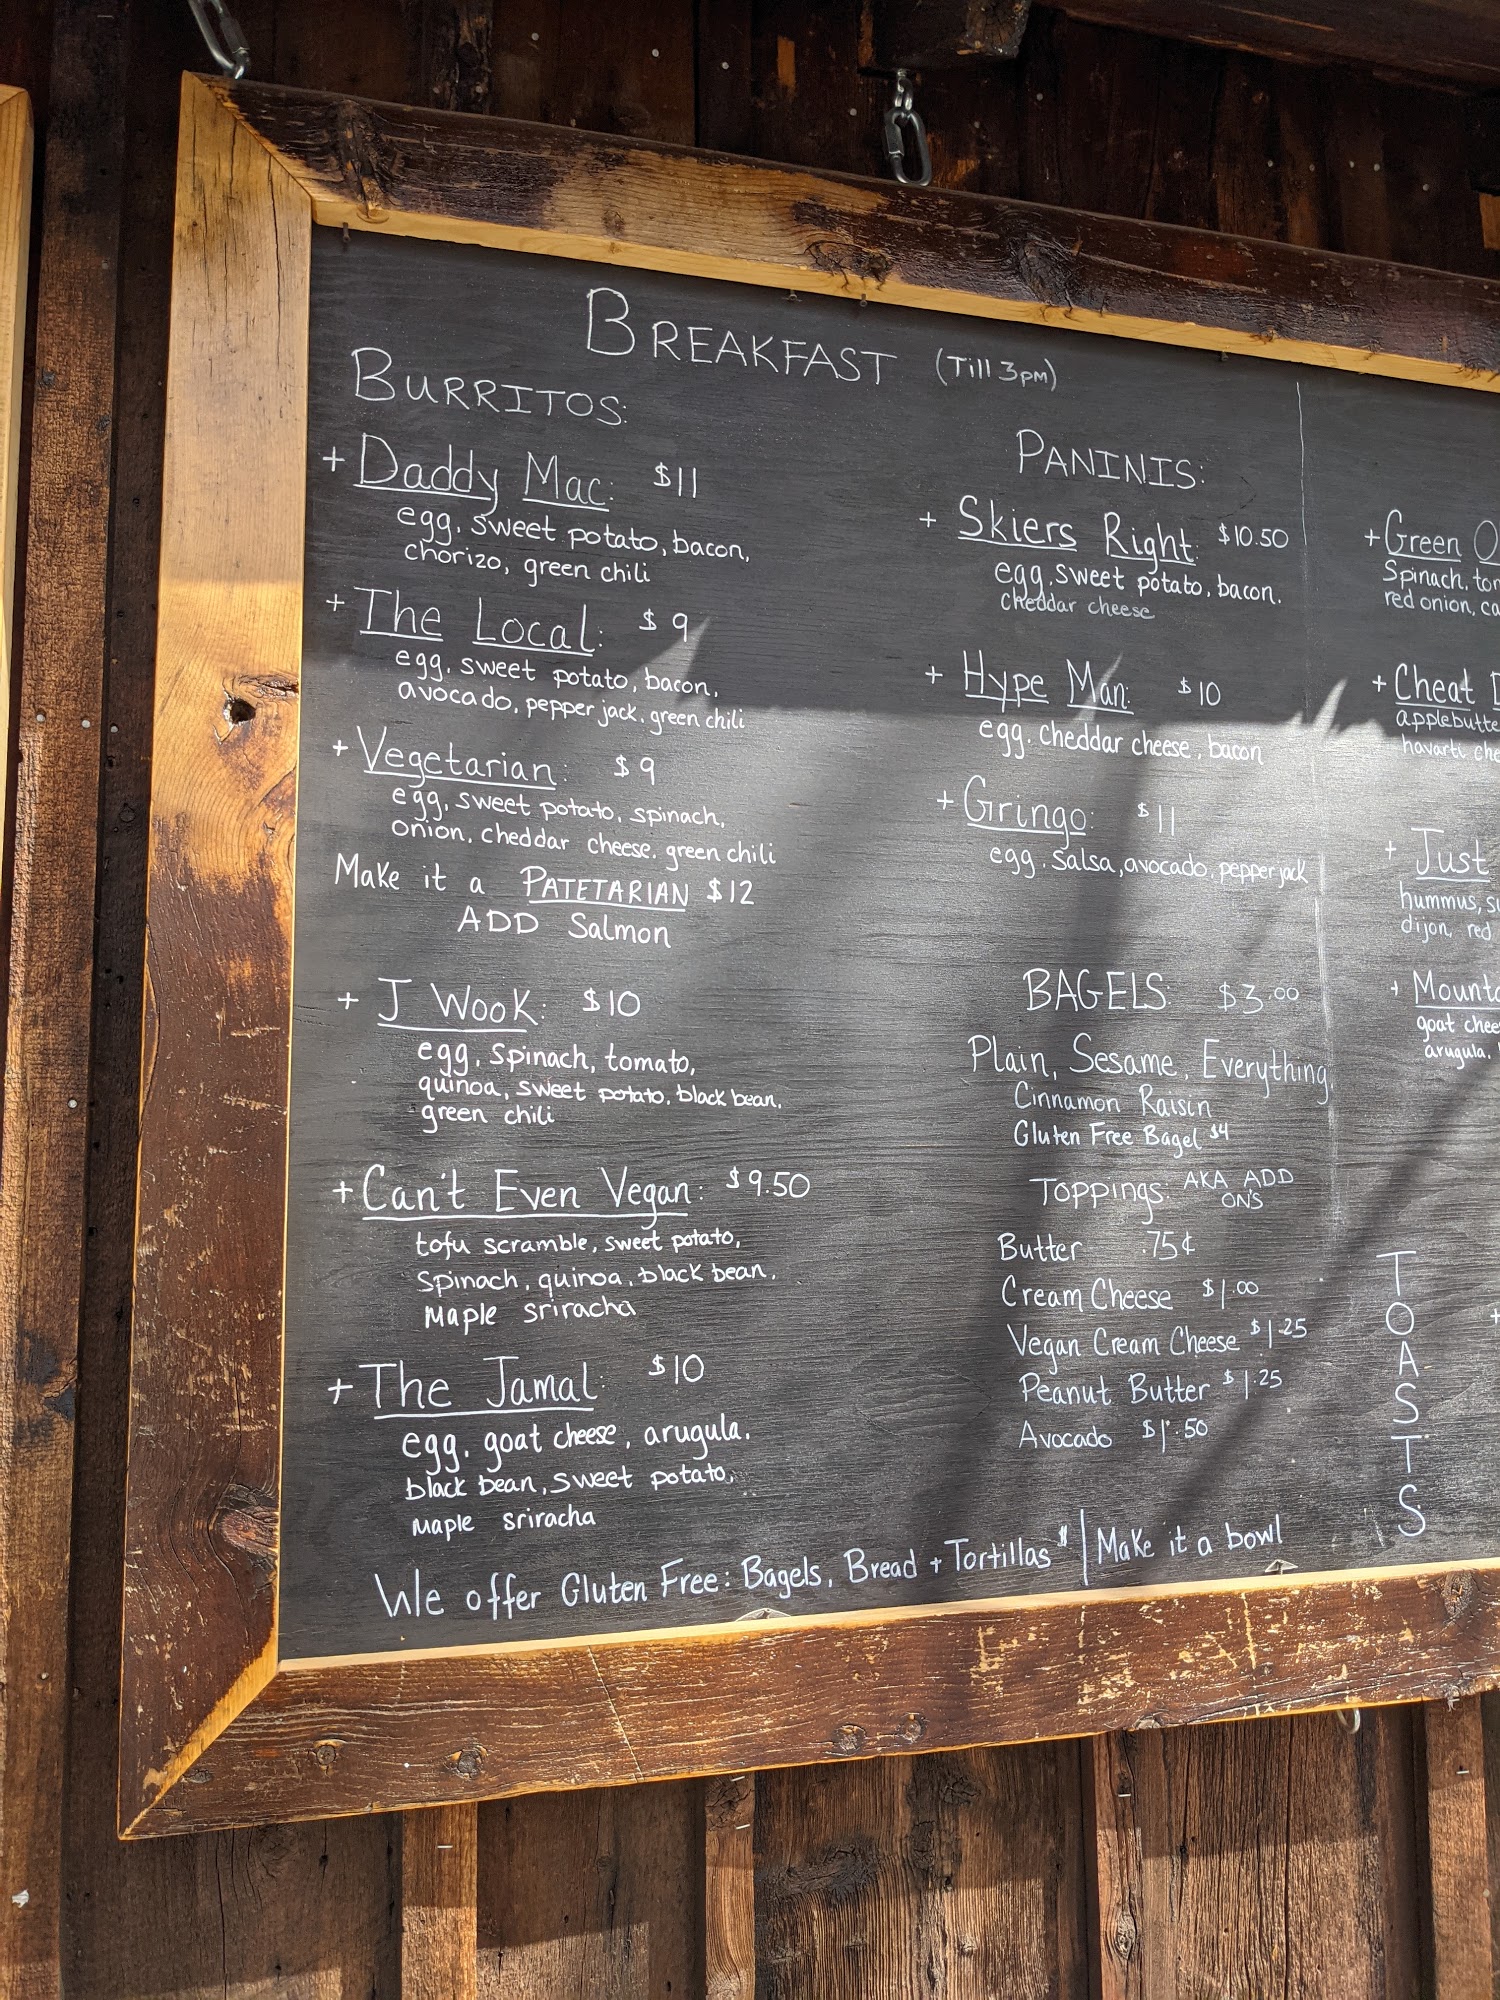 BREAKFAST (Till 3pm)
BURRITOS:
+ Daddy Mac: $11
egg, sweet potato, bacon,
chorizo, green chili
+ The Local: $9
egg, sweet potato, bacon,
avocado, pepper jack, green chili
+ Vegetarian: $9
egg, sweet potato, spinach,
onion, cheddar cheese, green chili
Make it a PATETARIAN $12
ADD Salmon
+ J Wook: $10
egg, spinach, tomato,
quinoa, sweet potato, black bean,
green chili
+ Can't Even Vegan: $9.50
tofu scramble, sweet potato,
Spinach, quinoa, black bean,
Maple sriracha
+ The Jamal: $10
egg, goat cheese, arugula,
black bean, sweet potato,
Maple sriracha
PANINIS:
+ Skiers Right: $10.50
egg, sweet potato, bacon,
cheddar cheese
+ Hype Man: $10
egg, cheddar cheese, bacon
+ Gringo: $11
egg, salsa, avocado, pepper jack
BAGELS: $3.00
Plain, Sesame, Everything,
Cinnamon Raisin
Gluten Free Bagel $4
TOPPINGS: AKA ADD
ON'S
Butter .75¢
Cream Cheese $1.00
Vegan Cream Cheese $1.25
Peanut Butter $1.25
Avocado $1.50
We offer Gluten Free: Bagels, Bread + Tortillas $ | Make it a bowl
+ Green
Spinach,
red onion,
+ Cheat
havarti
+ Just
hummus,
dijon, red
+
goat
arugula,
TOASTS
+